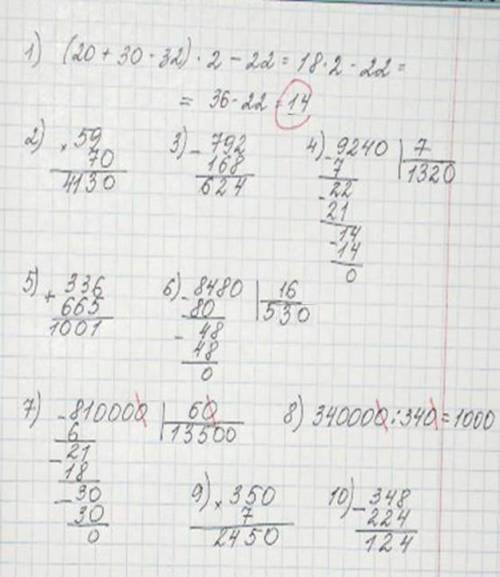 1) (20 + 30 - 32) · 2 - 22 = 18 · 2 - 22 =
= 36 - 22 = 14
2) × 59
70
4130
3) - 792
168
624
4) - 9240 | 7
7 1320
- 22
21
- 14
14
0
5) + 336
665
1001
6) - 8480 | 16
80 530
- 48
48
0
7) - 810000 | 60
6 13500
- 21
18
- 30
30
0
8) 340000 : 340 = 1000
9) × 350
7
2450
10) - 348
224
124